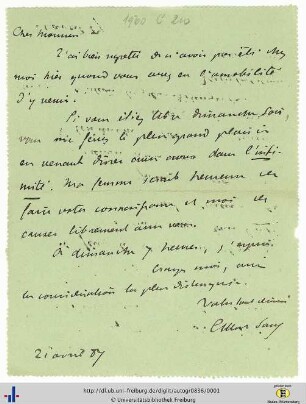 1960 C 210
Cher Monsieur
J'ai bien regretté de n'avoir pas été chez
moi hier quand vous avez eu l'amabilité
d'y venir.
Si vous étiez libre dimanche soir,
vous me feriez le plus grand plaisir
en venant dîner avec nous dans l'inti-
mité. Ma femme serait heureuse de
faire votre connaissance, et moi de
causer librement avec vous.
À dimanche 7 heures, j'espère.
Croyez moi, avec
la considération la plus distinguée,
Votre tout dévoué
21 avril 87
http://dl.ub.uni-freiburg.de/diglit/autogr0836/0001
© Universitätsbibliothek Freiburg